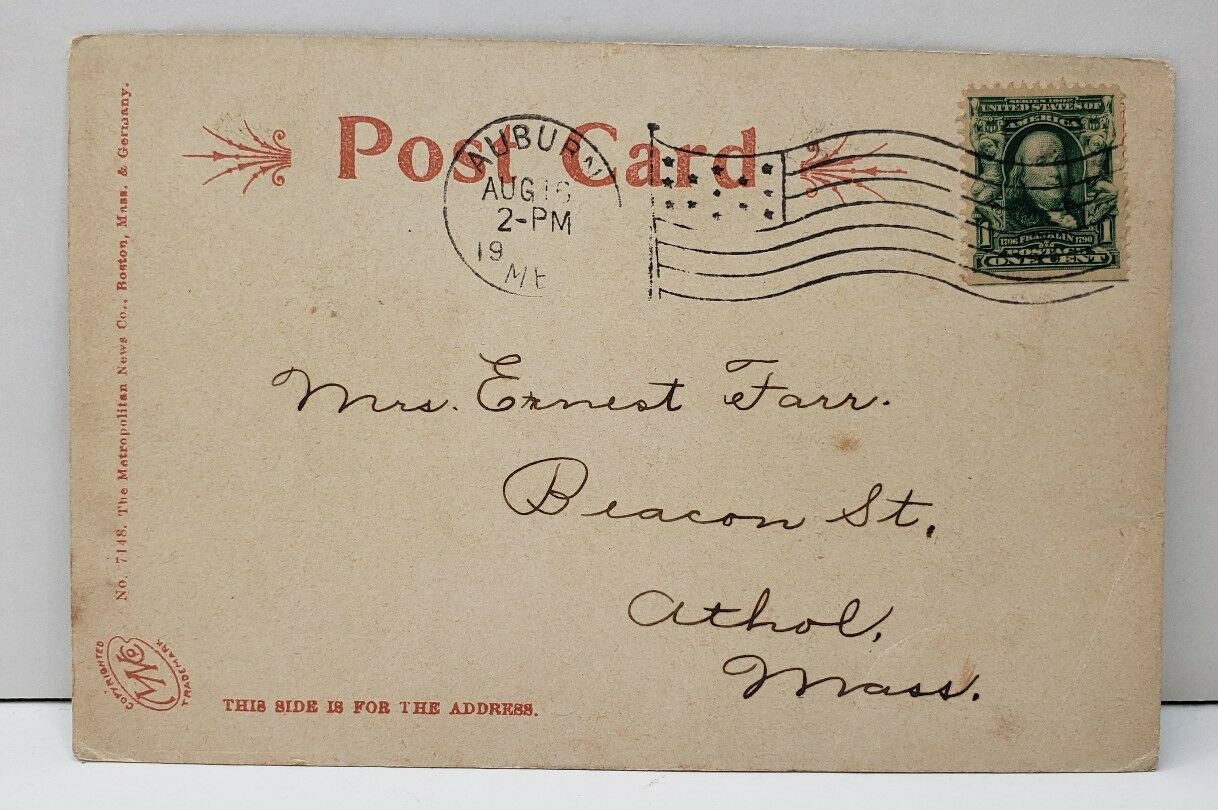 Post Card
AUBURN
AUG 16
2-PM
19
ME
SERIES 1902
UNITED STATES OF
AMERICA
1706 FRANKLIN 1790
1 POSTAGE 1
ONE CENT
Mrs. Ernest Farr.
Beacon St.
Athol,
Mass.
No. 7148. The Metropolitan News Co., Boston, Mass. & Germany.
COPYRIGHTED
TRADEMARK
THIS SIDE IS FOR THE ADDRESS.